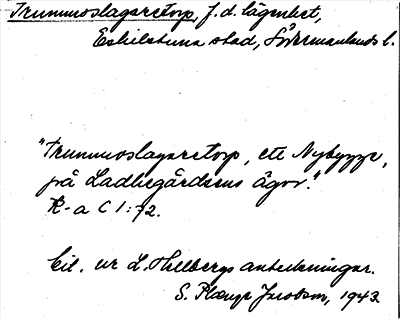 Trummslagaretorp, f.d. lägenhet,
Eskilstuna stad, Södermanlands l.
"Trummslagaretorp, ett Nybygge,
på Ladugårdsens ägor."
R-a C 1:72.
Cit. ur L. Hellbergs anteckningar.
S. Plænge Jacobson, 1943